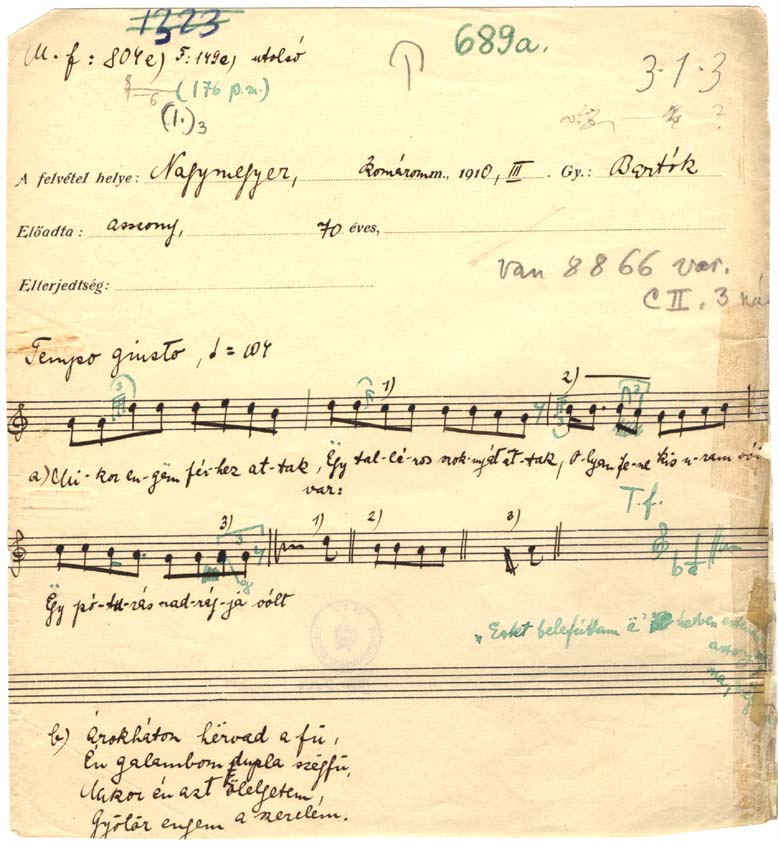 1323
M. f: 804e) F: 149a, utolsó
689a.
3-1-3
(176 p.m.)
(I.)3
?
A felvétel helye: Nagymegyer, Komáromm., 1910, III. Gy.: Bartók
Előadta: asszony, 70 éves,
van 8866 var.
Elterjedtség:
C II. 3
Tempo giusto, = 104
3 1) 2) 3
a) Mi-kor en-gëm fér-hez at-tak, Ëgy tal-lé-ros szok-nyát at-tak, O-lyan fe-ne kis u-ram
var:
T.f.
3) 3 1) 2) 3)
Ëgy pó-tu-rás nad-rág-já vólt
"Eztet belefúttam
b) Árokháton hërvad a fű,
Én galambom dupla szégfű,
Mikor én azt ölelgetem,
Gyötör engem a szerelëm.